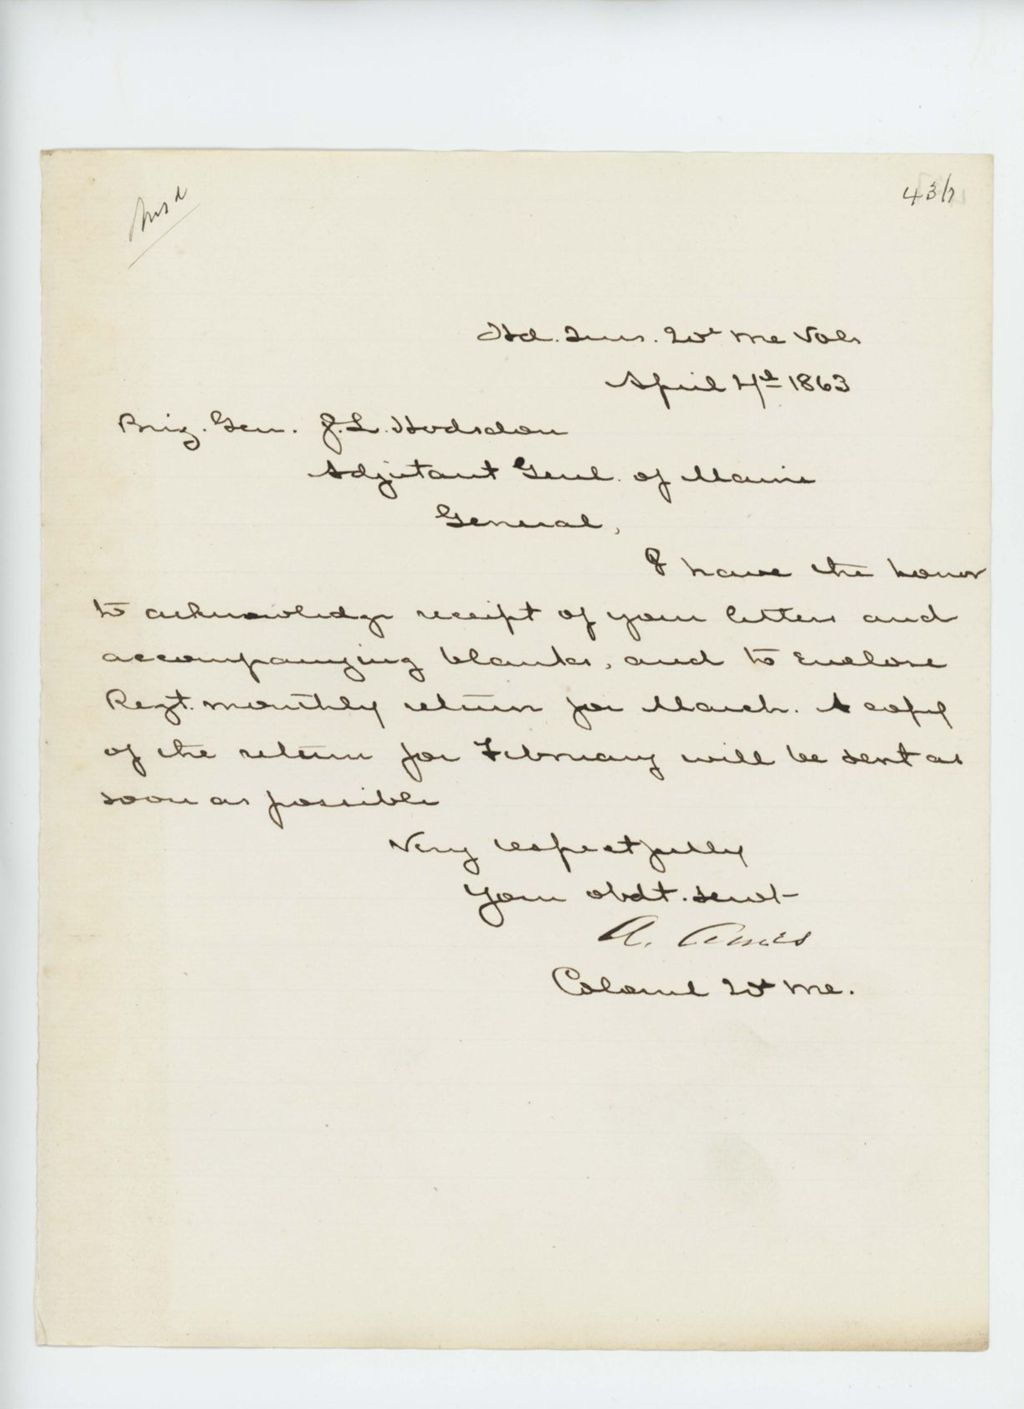 Ansd
Hd. Qurs. 20th Me Vols
April 4th 1863
Brig. Gen. J. L. Hodsdon
Adjutant Genl. of Maine
General,
I have the honor
to acknowledge receipt of your letters and
accompanying blanks, and to enclose
Regt. monthly return for March. A copy
of the return for February will be sent as
soon as possible
Very respectfully
Your obdt. servt
A. Ames
Colonel 20th Me.